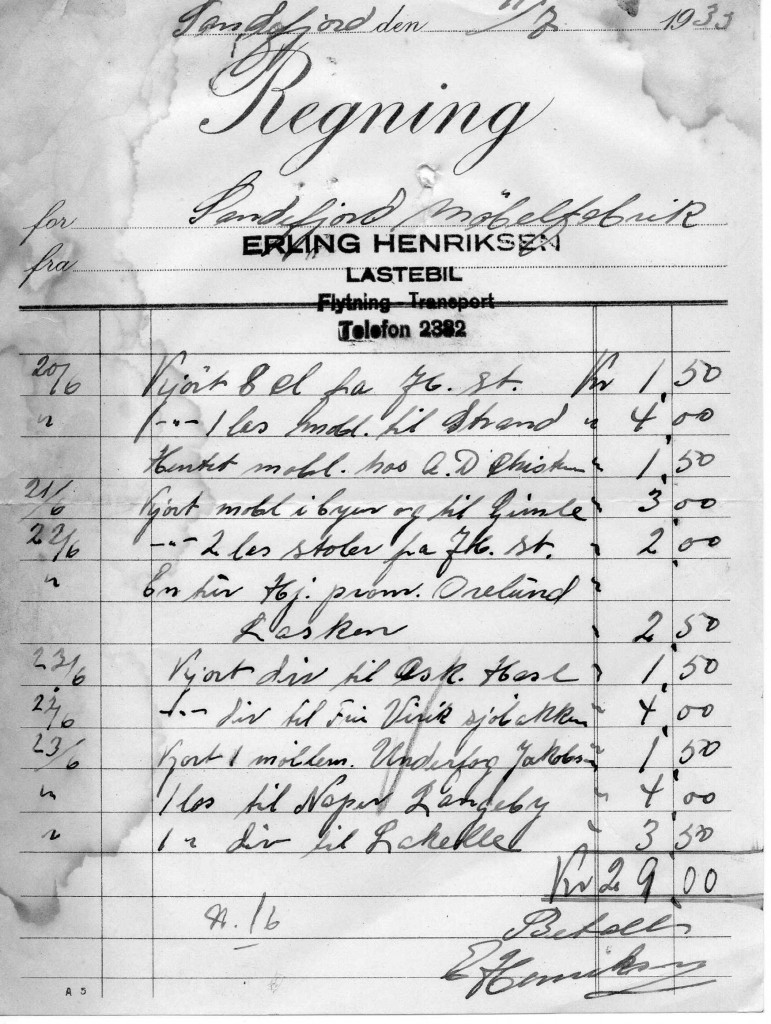 Sandefjord den 11/7 1933
Regning
for Sandefjord Møbelfabrik
fra ERLING HENRIKSEN
LASTEBIL
Flytning - Transport
Telefon 2382
20/6 Kjørt 8 fra Jb. st. Kr 1,50
" -"- 1 les møbl. til Strand " 4,00
Hentet møbl. hos A. D " 1,50
21/6 Kjørt møbl i byen og til Gimle " 3,00
22/6 -"- 2 les stoler fra Jb. st. " 2,00
" En tur Hj. prom. "
Lasken " 2,50
23/6 Kjørt div til Osk. Hasl " 1,50
22/6 -"- div til Virik sjøbakken " 4,00
23/6 Kjørt 1 Jakobsen " 1,50
" 1 les til Langeby " 4,00
" 1 " div til " 3,50
Kr 29,00
N. 16
Betalt
E Henriksen
A 5